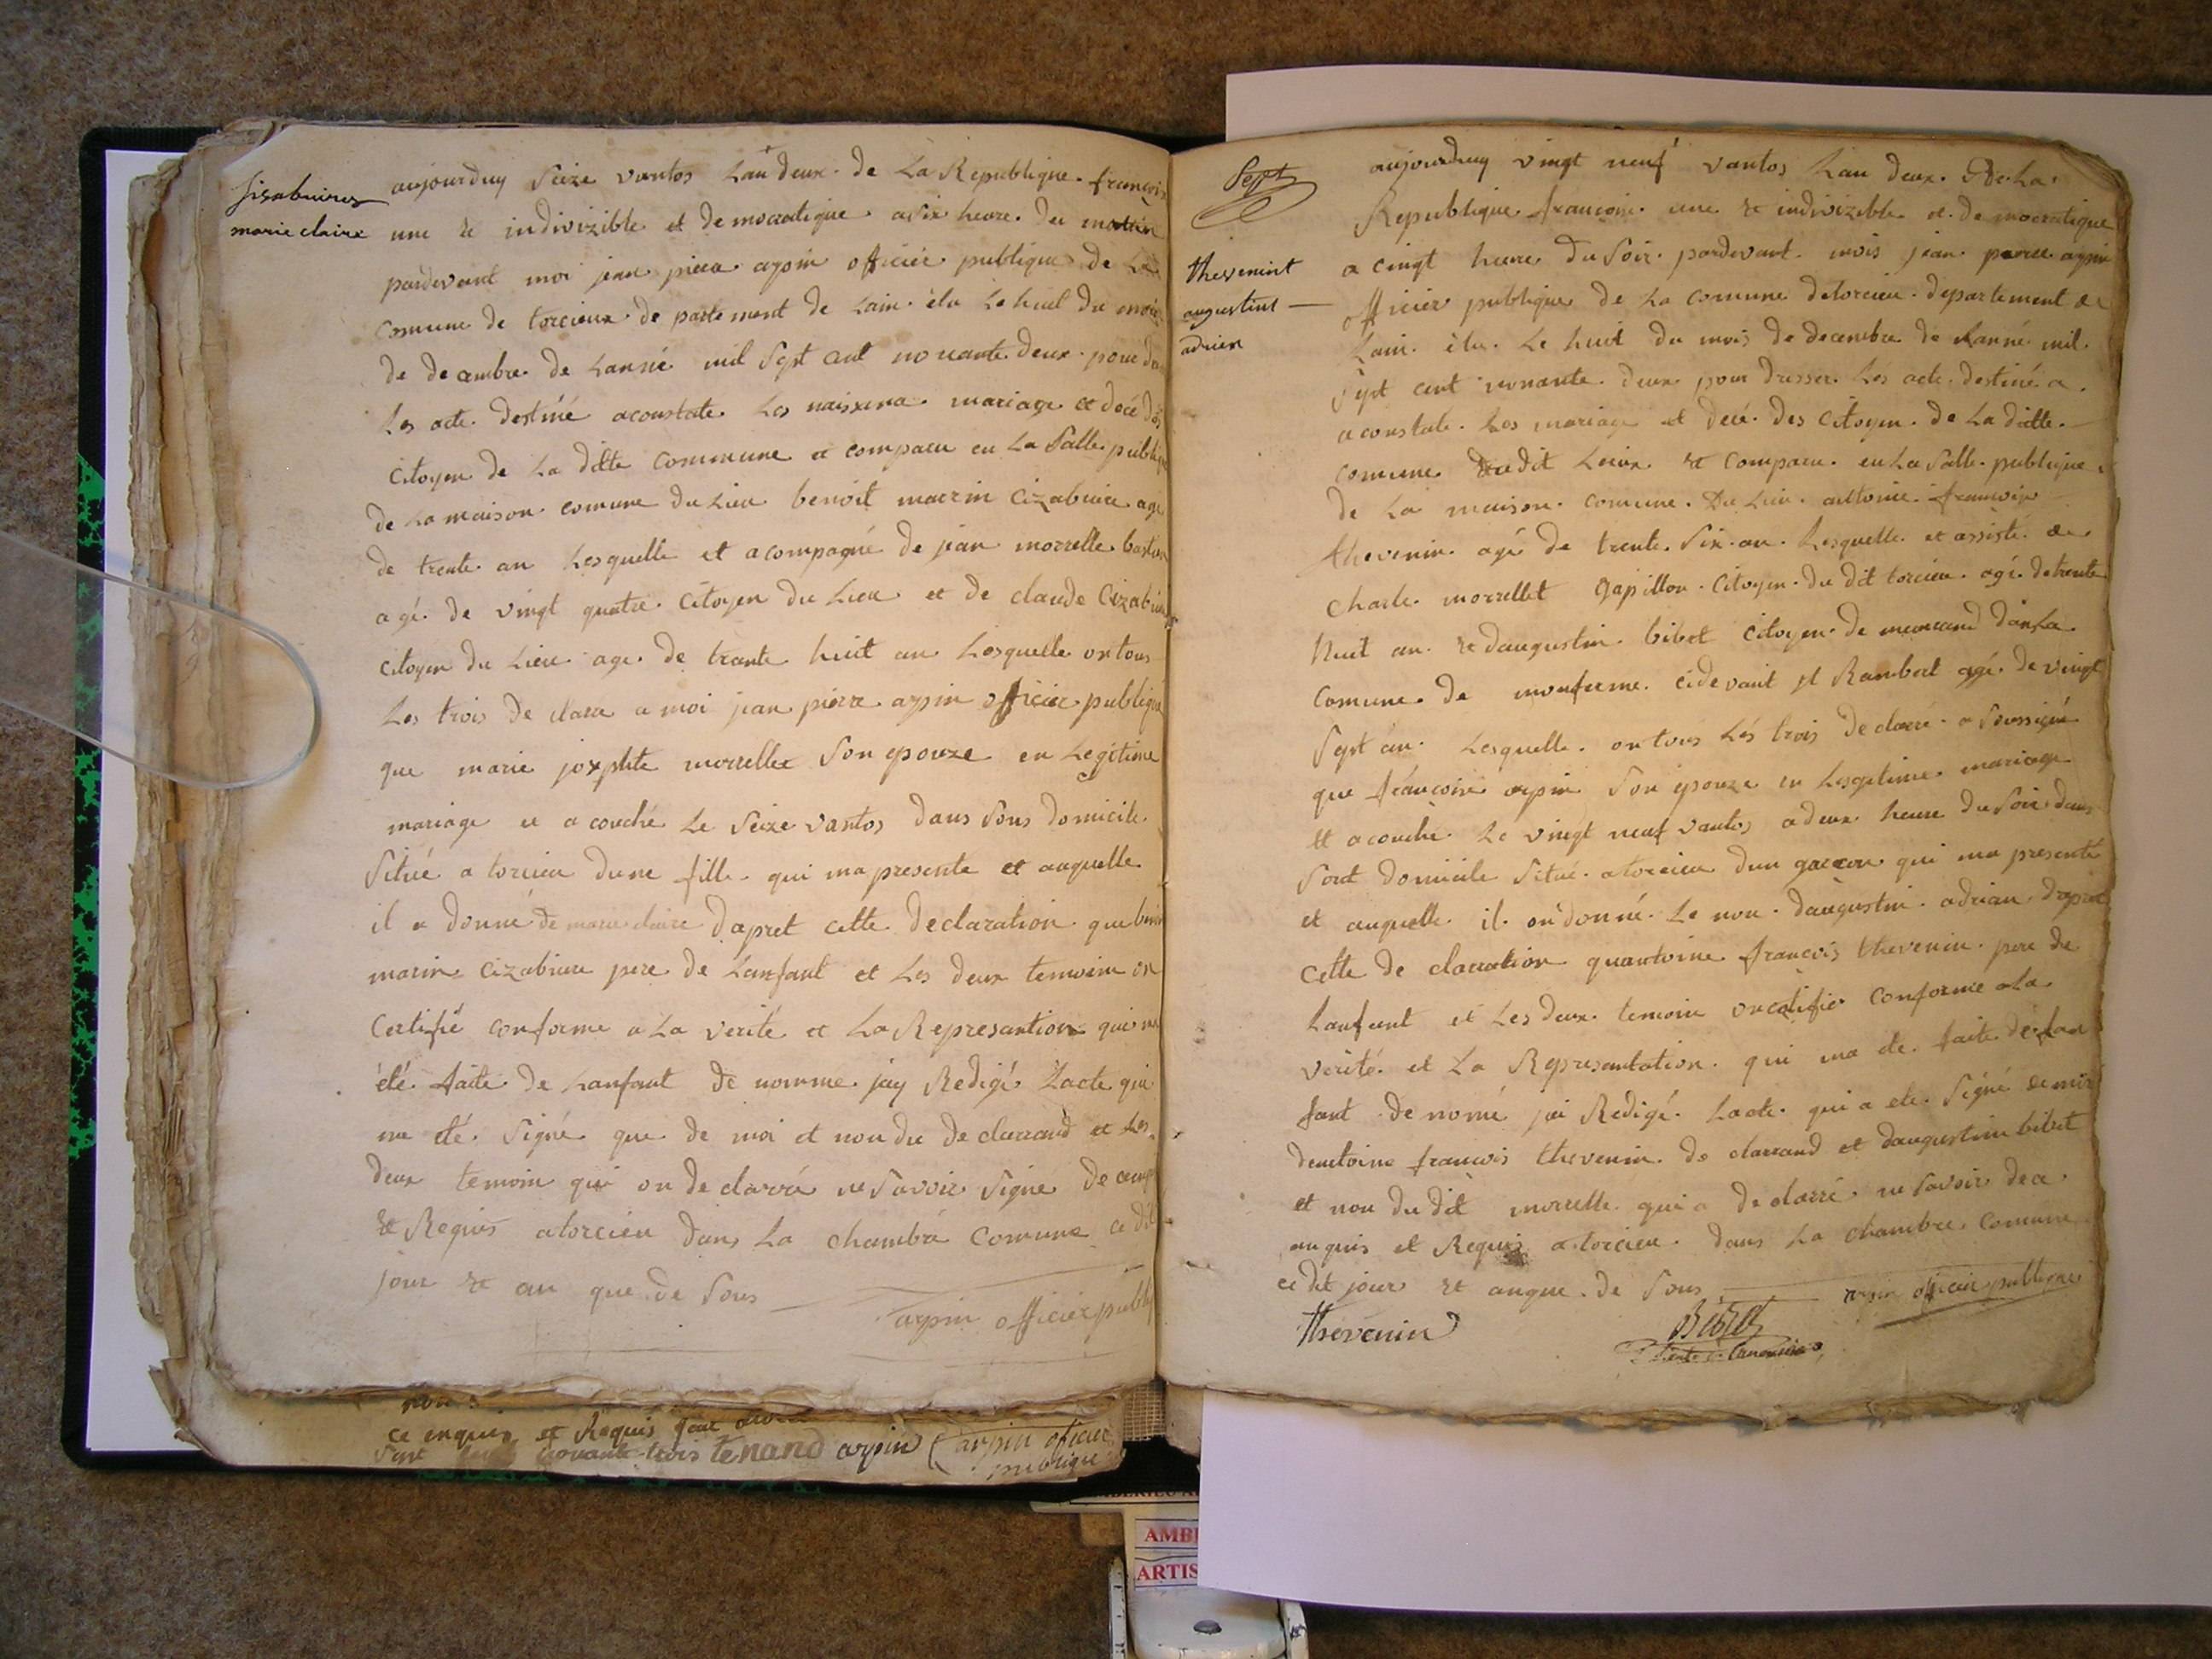 sisabuires
marie claire
aujourduy Seize vantos Lan deux de La Republique françois
une & indivizible et de mocratique a Six heure du mattin
pardevant moi jean piere arpin officier publique de La
Comune de torcieux de partement de Lain élu Le huit du mois
de decembre de Lanné mil Sept cent nonante deux pour
Les acte destiné a coustate Les naissena mariage et décé des
Citoyen de La ditte Commune et comparu en La Salle publique
de La maison comune du Lieu benoit marin Cizabuire agé
de trente an Lesquelle et acompagné de jean morrelle
agé de vingt quatre Citoyen du Lieu et de claude Cizabuire
Citoyen du Lieu age de trante huit an Lesquelle on tous
Les trois de clara a moi jean pierre arpin officier publique
que marie josephte morrelle Son epouze en Legitime
mariage et a couché Le Seize vantos dans Sons domicile
Situé a torcieu dune fille qui ma presente et auquelle
il a donné de marie claire dapret cette declaration que
marin Cizabuire pere de Lanfant et Les deux temoin on
Certifié conforme a La verité et La Represantion qui ma
été faite de Lanfant de nomme jay Redigé Lacte qui
na été Signé que de moi et non du de clarrand et Les
deux temoin qui on de clarré ne Savoir Signe de
& Requis a torcieu dans La chambre Comune ce dit
jour & an que de Sous
arpin officier publique
non
ce enquis et Requis
Sept nonante trois tenand arpin arpin oficier
publique
Sept
thevenint
augustint
adrien
aujourduy vingt neuf vantos Lan deux de La
Republique françoise une & indivizible et de mocratique
a cinqt heure du Soir pardevant mois jean pierre arpin
officier publique de La comune de torcieu departement de
Lain élu Le huit du mois de decembre de Lanné mil
Sept cent nonante deux pour dresser Les acte destiné a
a constate Les mariage et décé des Citoyen de La ditte
comune dudit Lieux & Comparu en La Salle publique
de La maison comune Du Lieu antoine francoix
thevenin agé de trente Six an Lesquelle et assisté de
Charle morrellet Gapillon Citoyen du dit torcieu agé de trente
huit an & daugustin bibet Citoyen de dans La
Comune de monferme cidevant st Rambert agé de vingt
Sept an Lesquelle on tous Lés trois de clarré a Soussigné
que françoise arpin Son épouze en Lesgetime mariage
et a couché Le vingt neuf vantos a deux heure du Soir dans
Sont domicile Situé a torcieu dun garcon qui ma presenté
et auquelle il on donné Le non daugustin adrian dapret
Cette de claration quantoine françois thevenin pere de
Lanfant et Les deux temoin on certifié Conforme a La
verité et La Represantation qui ma ete faite de Lan
fant de nomé jai Redigé Lacte qui a ete Signé de moi
dentoine francois thevenin de clarrand et daugustin bibet
et non du dit morrelle qui a de clarré ne Savoir de ce
anquis et Requis a torcieu dans La chambre Comune
ce dit jour & anque de Sous arpin officier publique
thevenin Bibet
AMBE
ARTIS